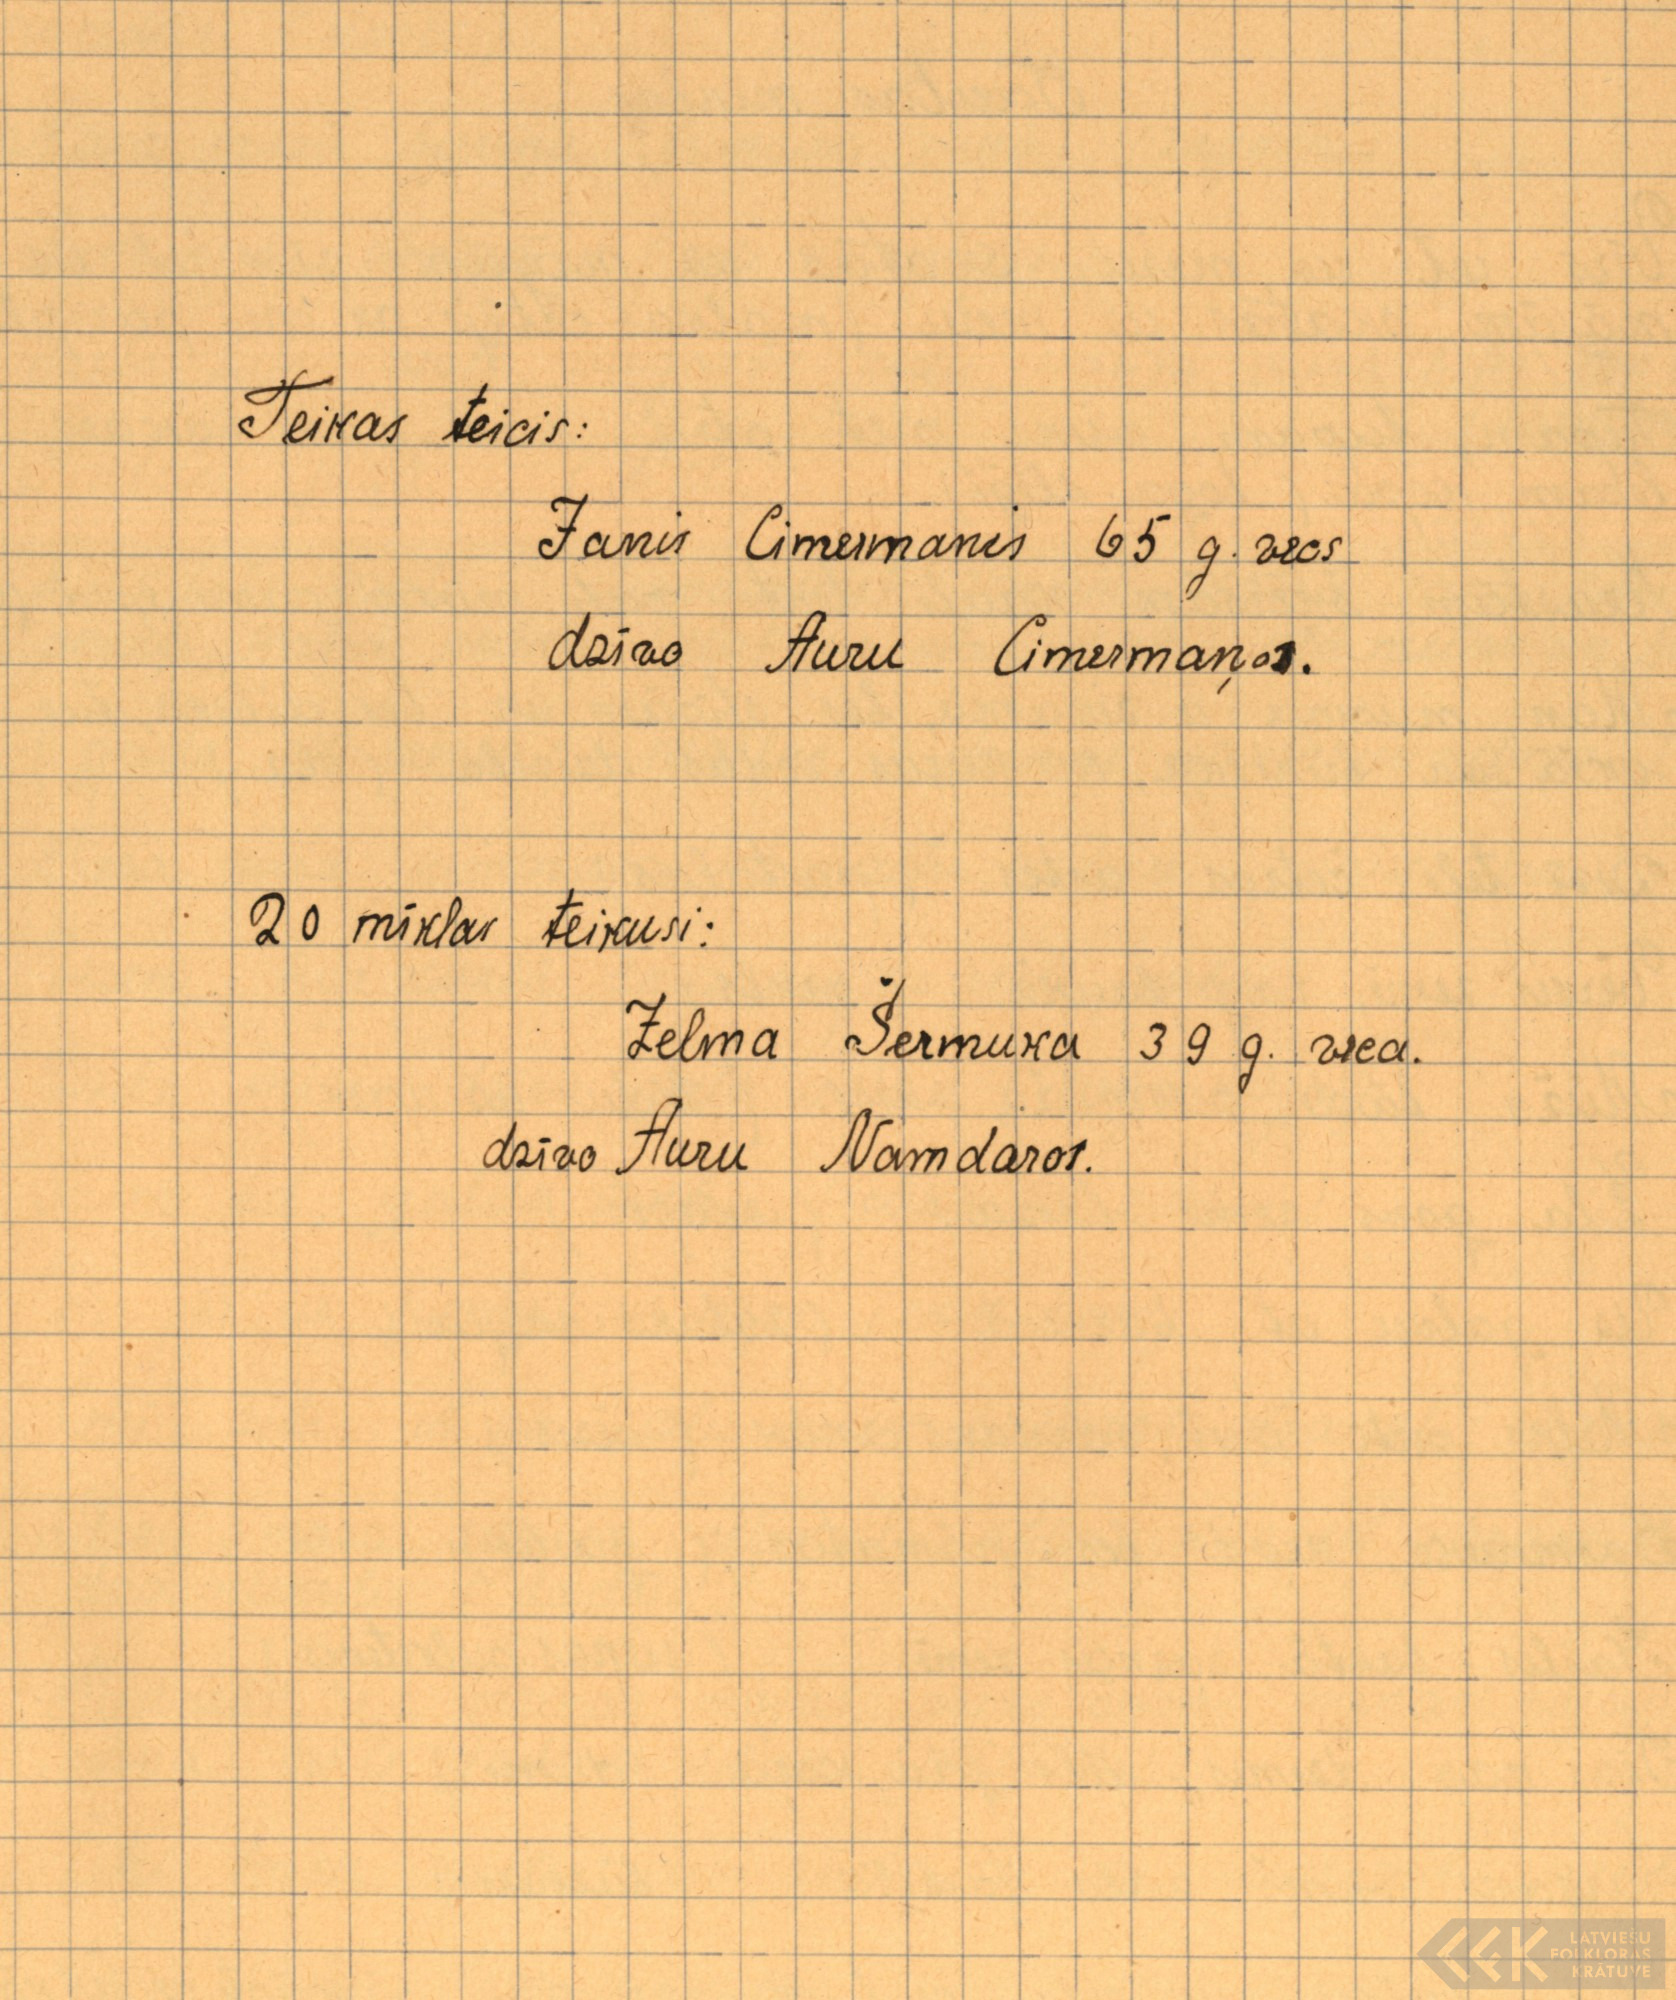 Teikas teicis:
Janis Cimermanis 65 g. vecs
dzīvo Auru Cimermaņos.
20 mīklas teikusi:
Zelma Šermuka 39 g. veca.
dzīvo Auru Namdaros.
LATVIEŠU
FOLKLORAS
KRĀTUVE